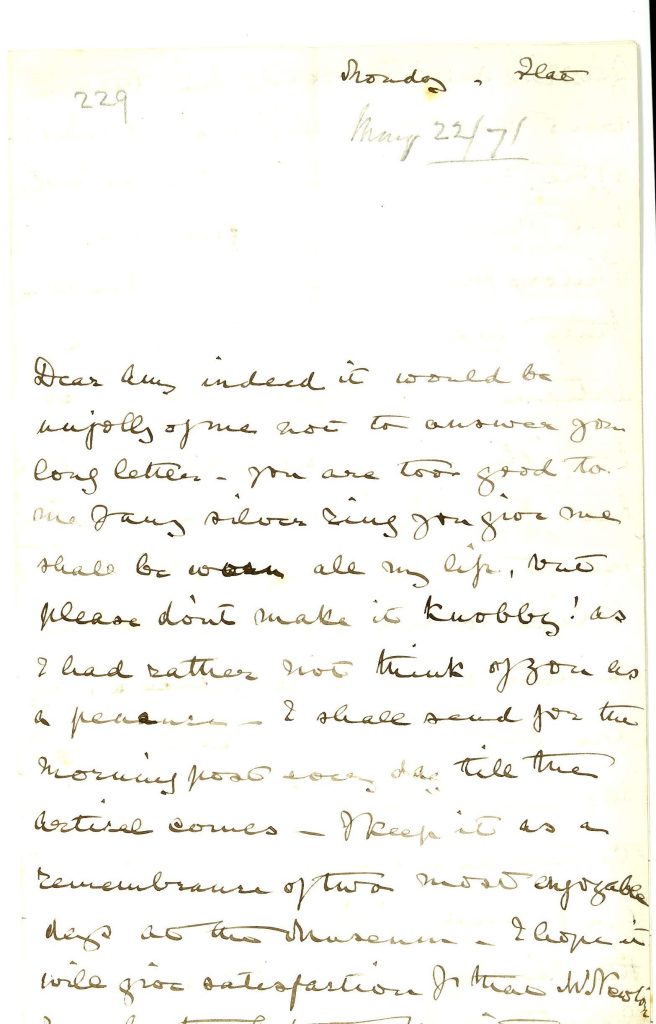 229
Monday. Flat
May 22/71
Dear Amy indeed it would be
unjolly of me not to answer your
long letter – you are too good to
me & any silver ring you give me
shall be worn all my life, but
please don't make it knobby! as
I had rather not think of you as
a penance – I shall send for the
Morning post every day till the
artical comes – I keep it as a
remembrance of two most enjoyable
days at the Museum – I hope it
will give satisfaction to that Mr Newton